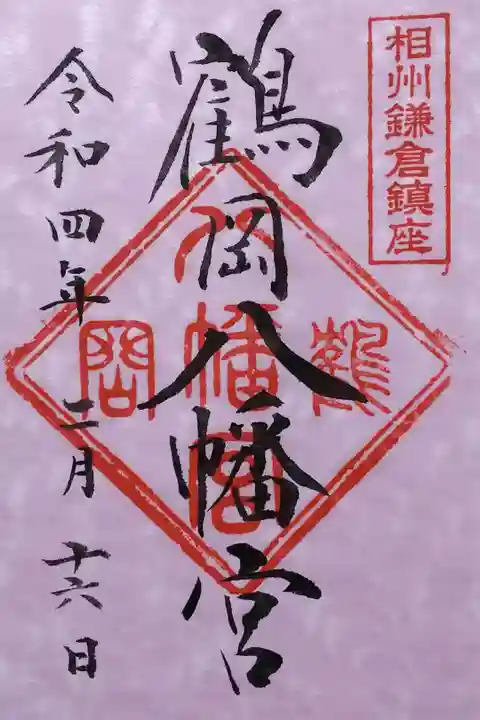 相州鎌倉鎮座
鶴岡八幡宮
鶴
八幡宮
岡
令和四年 二月 十六日